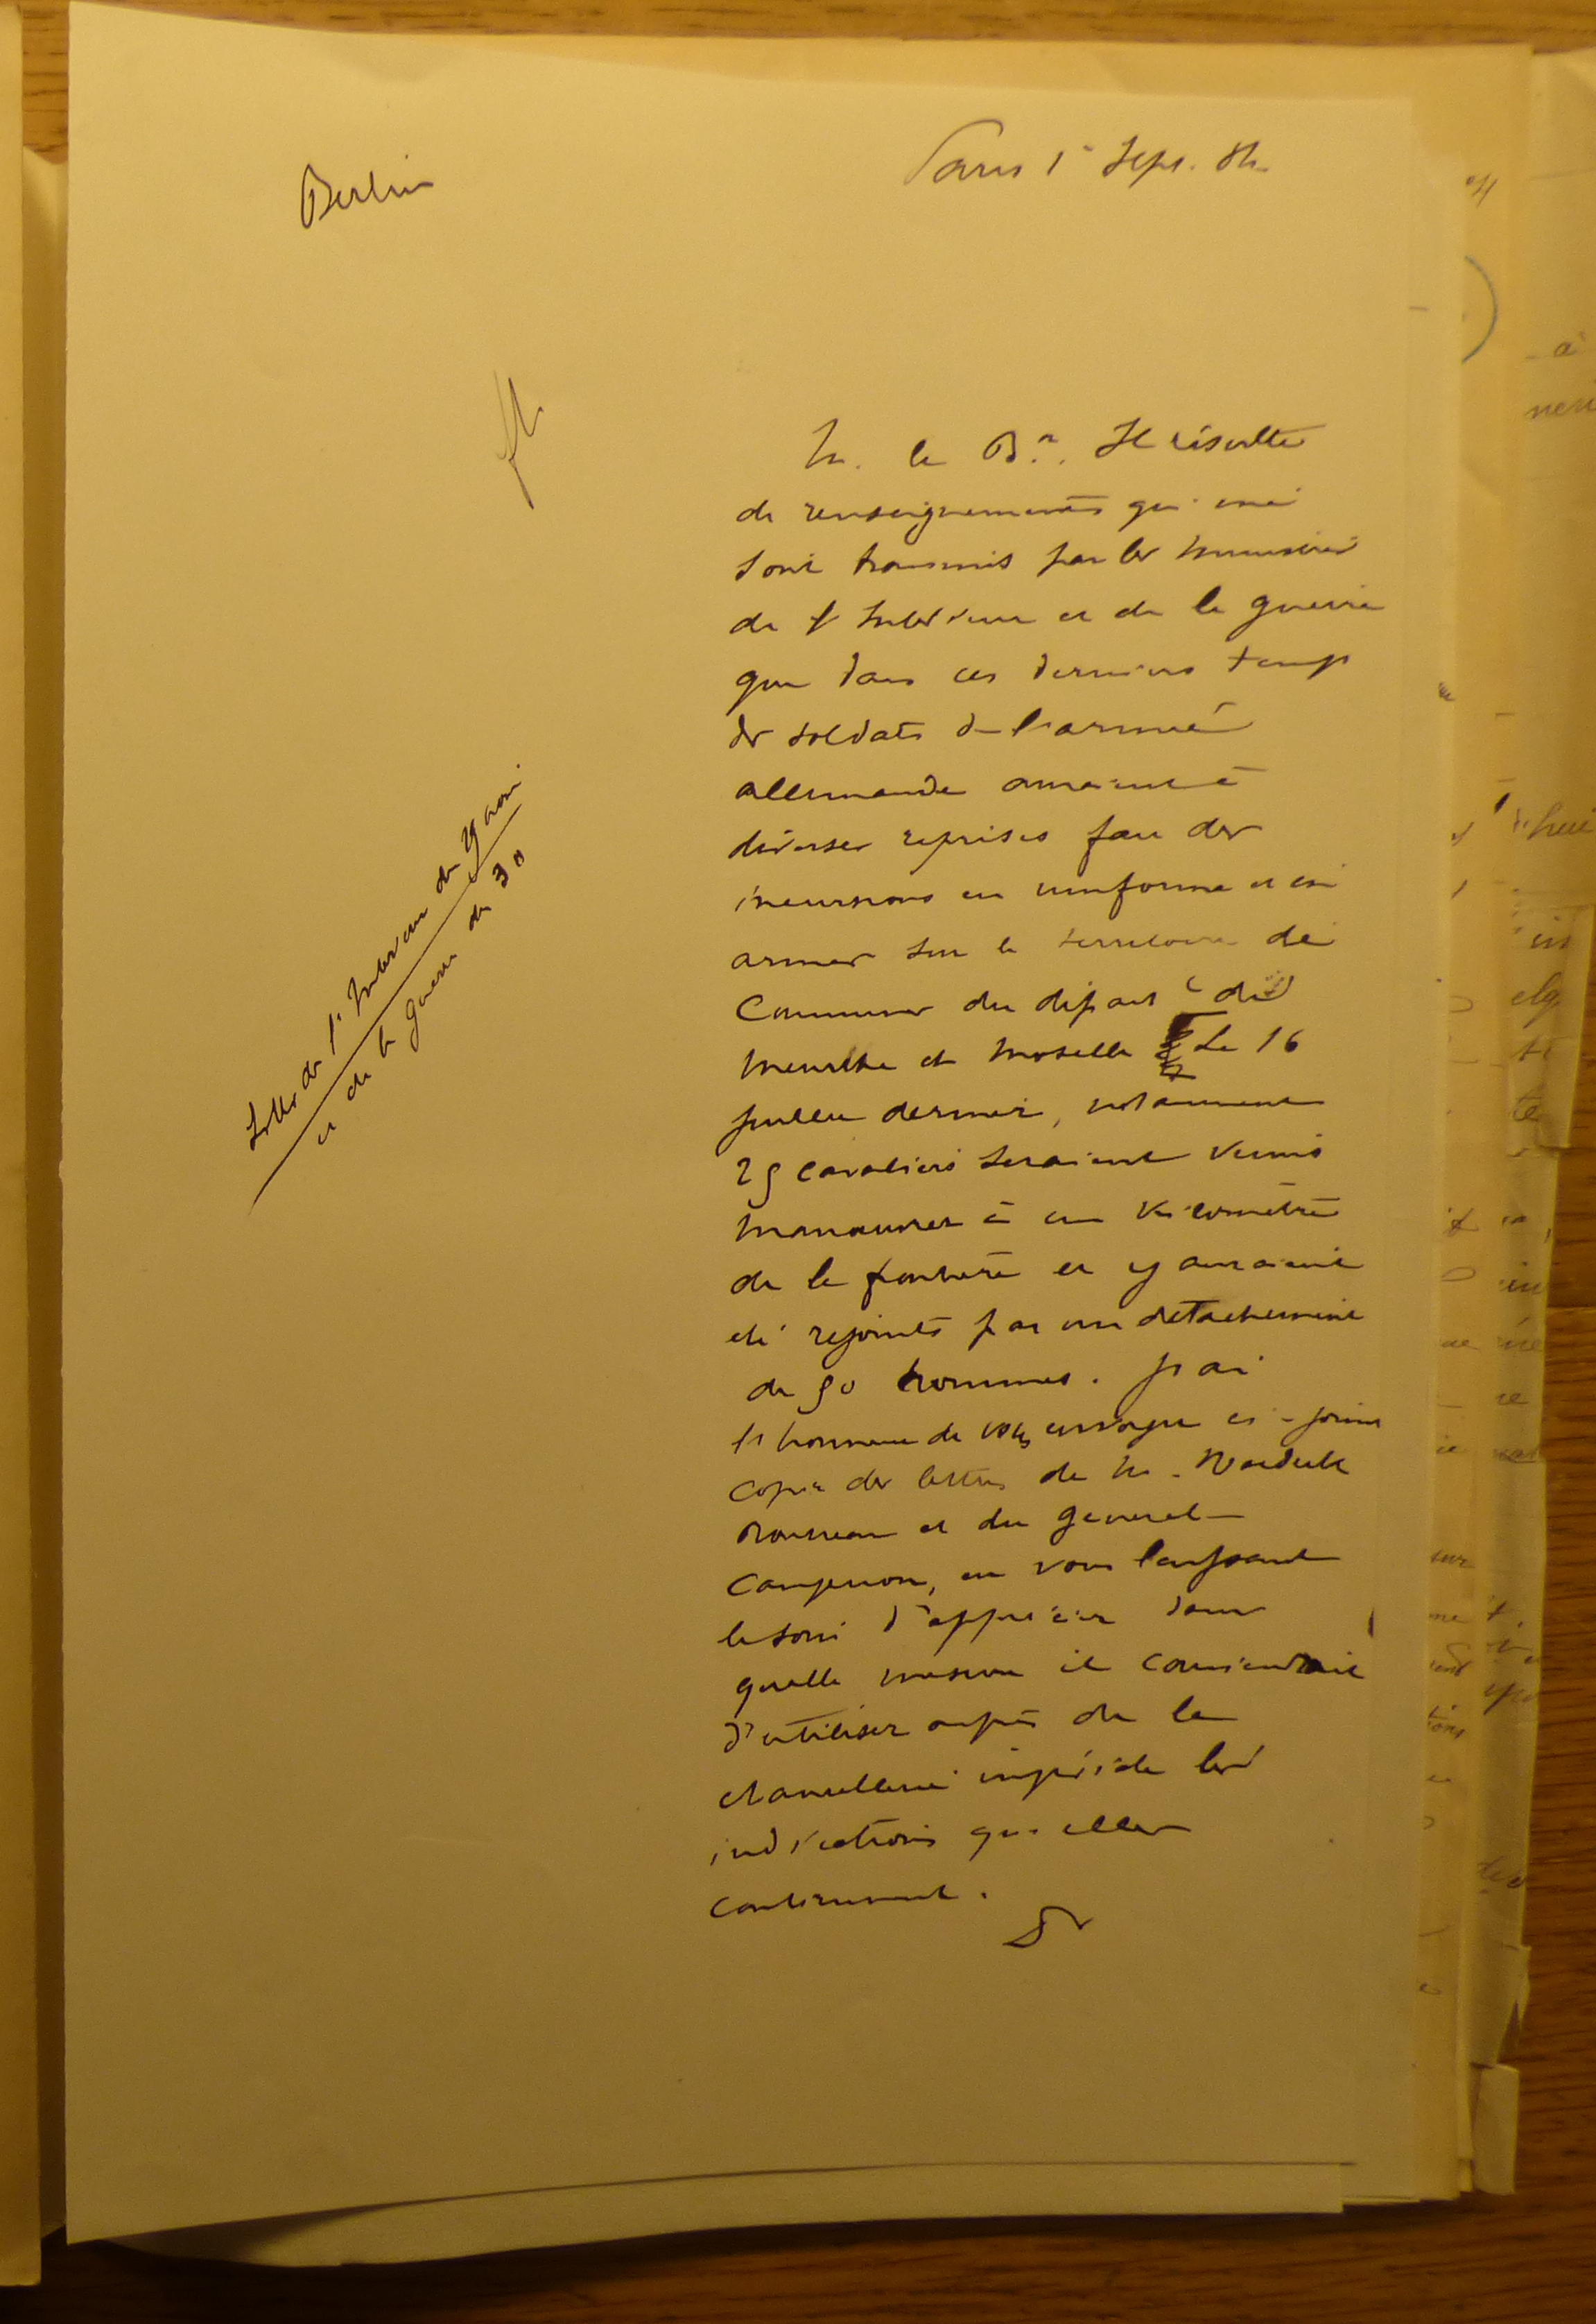 Berlin
Paris 1er Sept. 84
M. le Bon. Il résulte
de renseignements qui me
sont transmis par les ministres
de l'Intérieur et de la guerre
que dans ces derniers temps
des soldats de l'armée
allemande auraient à
diverses reprises fait des
incursions en uniforme et en
armes sur le territoire de
Communes du départt de
Meurthe et Moselle Le 16
juillet dernier, notamment
25 cavaliers seraient venus
manœuvrer à un kilomètre
de la frontière et y auraient
été rejoints par un détachement
de 50 hommes. J'ai
l'honneur de vous envoyer ci-joint
copie des lettres de M. Waldeck
Rousseau et du général
Campenon, en vous laissant
le soin d'apprécier dans
quelle mesure il conviendrait
d'utiliser auprès de la
chancellerie impériale les
indications qu'elles
contiennent.
Lettres de l'Intérieur du 29 août
et de la guerre du 30